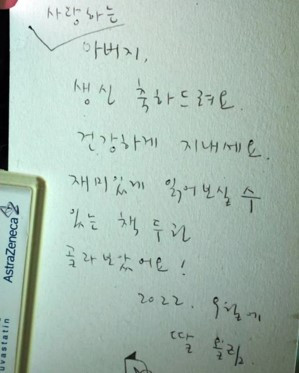 사랑하는
아버지,
생신 축하드려요.
건강하게 지내세요.
재미있게 읽어보실 수
있는 책 두권
골라보았어요!
2022. 9월에
딸
AstraZeneca
uvastatin